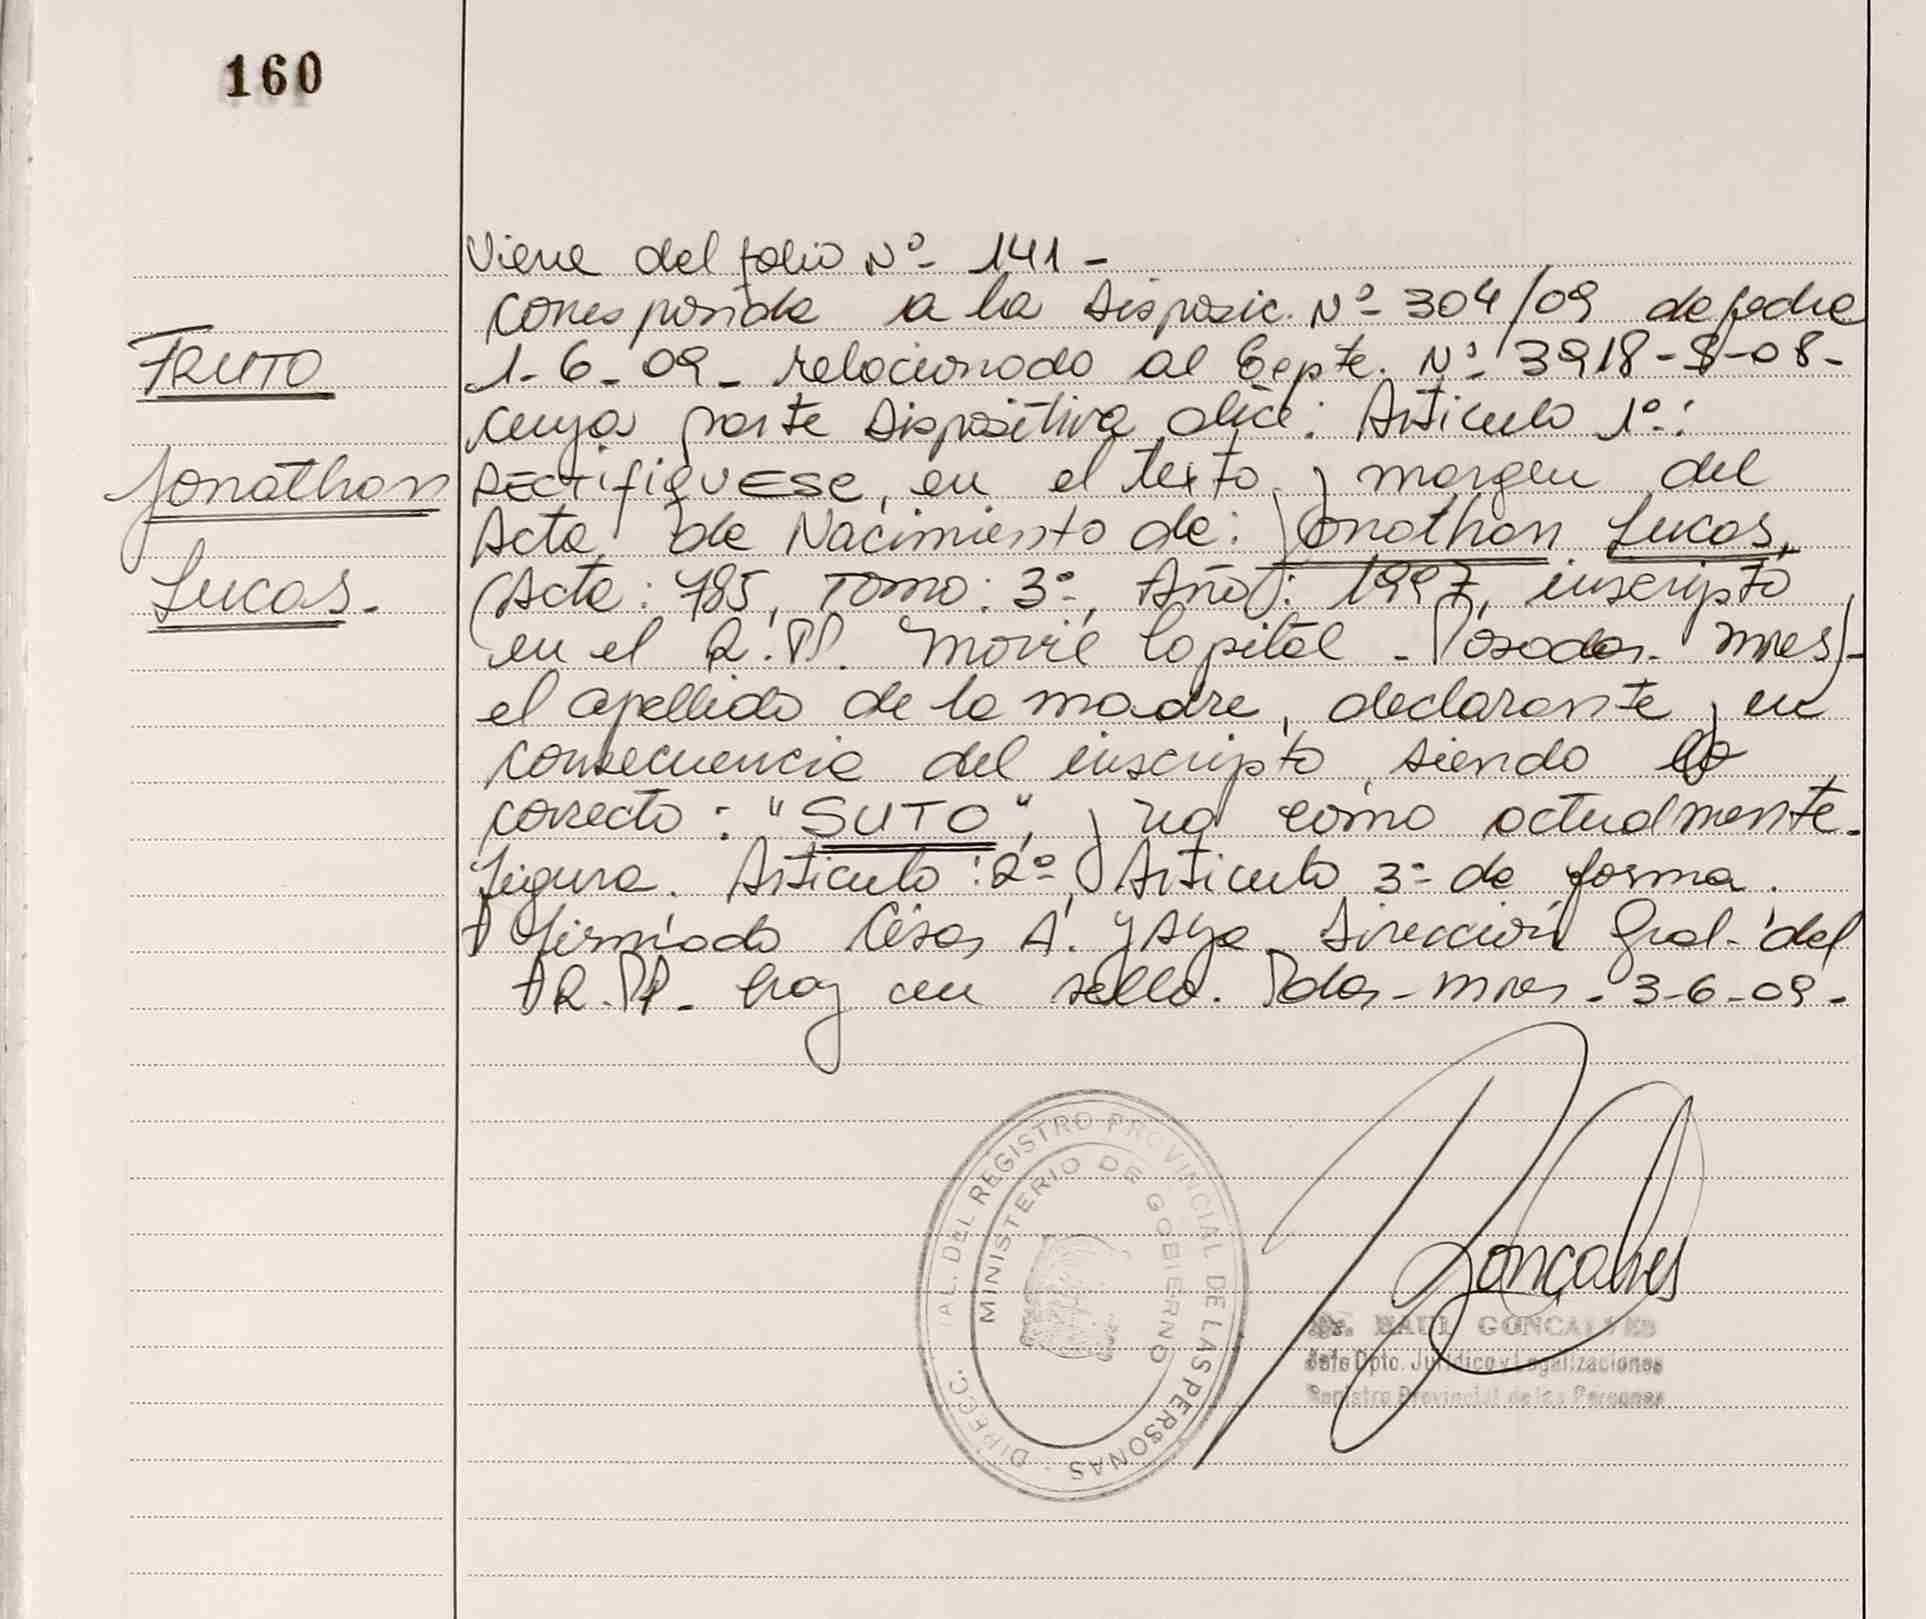 160
Viene del folio Nº 141 -
FRUTO
Jonathan
Lucas.
corresponde a la Disposic. Nº 304/09 de fecha
1-6-09- relacionado al Expte. Nº 3918-S-08-
cuya parte Dispositiva dice: Articulo 1º:
RECTIFIQUESE, en el texto y margen del
Acta de Nacimiento de: Jonathan Lucas,
(Acta: 785, Tomo: 3º, Año: 1997, inscripto
en el R.PP. Movil Capital - Posadas - Mnes)-
el apellido de la madre, declarante y en
consecuencia del inscripto, siendo lo
correcto: "SUTO", y no como actualmente
figura. Articulo: 2º y Articulo 3º de forma.
Firmado César A. Yaya Dirección Gral. del
R.PP. hay un sello. Pdas - Mnes - 3-6-09-
DIRECC. GRAL. DEL REGISTRO PROVINCIAL DE LAS PERSONAS
MINISTERIO DE GOBIERNO
Goncalves
RAUL GONCALVES
Jefe Dpto. Jurídico y Legalizaciones
Registro Provincial de las Personas